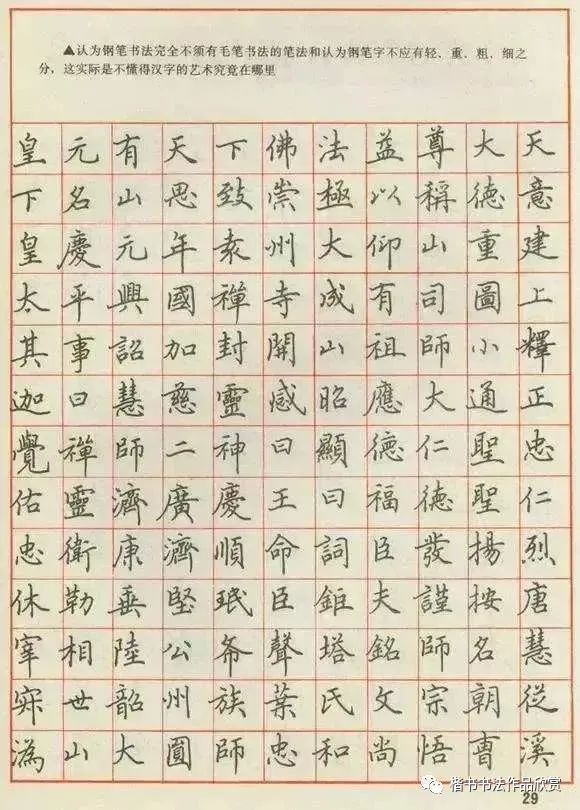 ▲认为钢笔书法完全不须有毛笔书法的笔法和认为钢笔字不应有轻、重、粗、细之
分，这实际是不懂得汉字的艺术究竟在哪里
皇元有天下佛法益尊大天
下名山思致崇極以稱德意
皇慶元年袁州大仰山重建
太平興國禪寺成有司圖上
其事詔加封開山祖師小釋
迦曰慧慈靈感昭應大通正
覺禪師二神曰顯德仁聖忠
佑靈濟廣慶王曰福德聖仁
忠衛康濟順命詞臣發揚烈
休勒垂堅珉臣鉅夫謹按唐
宰相陸公希聲塔銘師名慧
寂世韶州族葉氏文宗朝從
溈山大圓師忠和尚悟曹溪
楷书书法作品欣赏
29